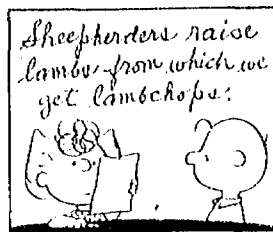 Sheepherders raise
lambs from which we
get lambchops.